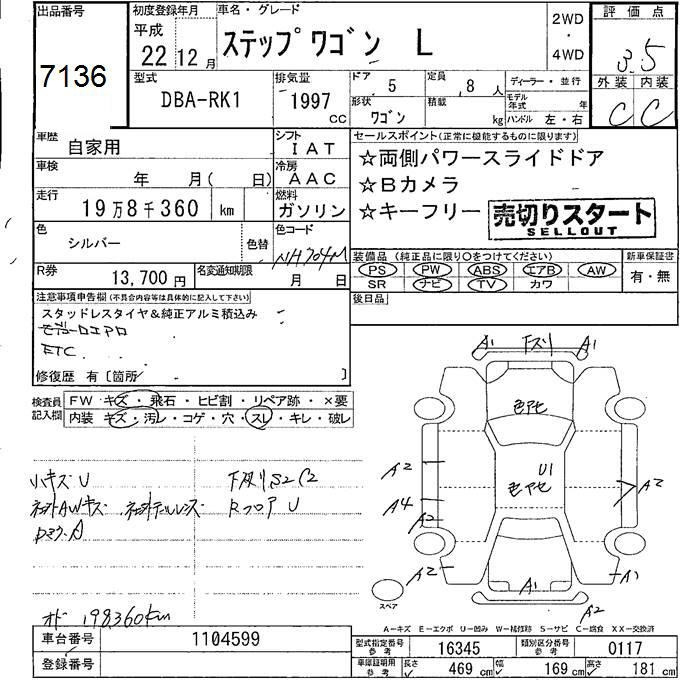 出品番号 7136
初度登録年月 平成 22 12月
車名・グレード ステップワゴン L
2WD ・ 4WD
評価点 3.5
外装 C 内装 C
型式 DBA-RK1
排気量 1997 CC
ドア 5
定員 8 人
形状 ワゴン
積載 kg
ディーラー・並行
モデル年式 年
ハンドル 左・右
車歴 自家用
シフト IAT
車検 年 月( 日)
冷房 AAC
走行 19万8千360 km
燃料 ガソリン
色 シルバー 色替
色コード NH704M
R券 13,700円
名変通知期限 月 日
セールスポイント(正常に機能するものに限ります)
☆両側パワースライドドア
☆Bカメラ
☆キーフリー
売切りスタート
SELLOUT
装備品(純正品に限り○をつけてください)
PS PW ABS エアB AW
SR ナビ TV カワ
新車保証書 有・無
後日品
注意事項申告欄(不具合内容等は具体的に記入して下さい)
スタッドレスタイヤ&純正アルミ積込み
モデューロエアロ
ETC
修復歴 有〔箇所 〕
検査員記入欄
FW キズ・飛石・ヒビ割・リペア跡・×要
内装 キズ・汚レ・コゲ・穴・スレ・キレ・破レ
ハキズU 下スリS2C2
Rフロア U
オド 198360km
A1 下スリ A1
色アセ
U1
色アセ
A2
A4
A2
A2
A2
A1
A1
A2
スペア
A−キズ E−エクボ U−凹み W−補修跡 S−サビ C−腐食 XX−交換済
車台番号 1104599
登録番号
型式指定番号 参考 16345
類別区分番号 参考 0117
車庫証明用 参考 長さ 469 cm 幅 169 cm 高さ 181 cm